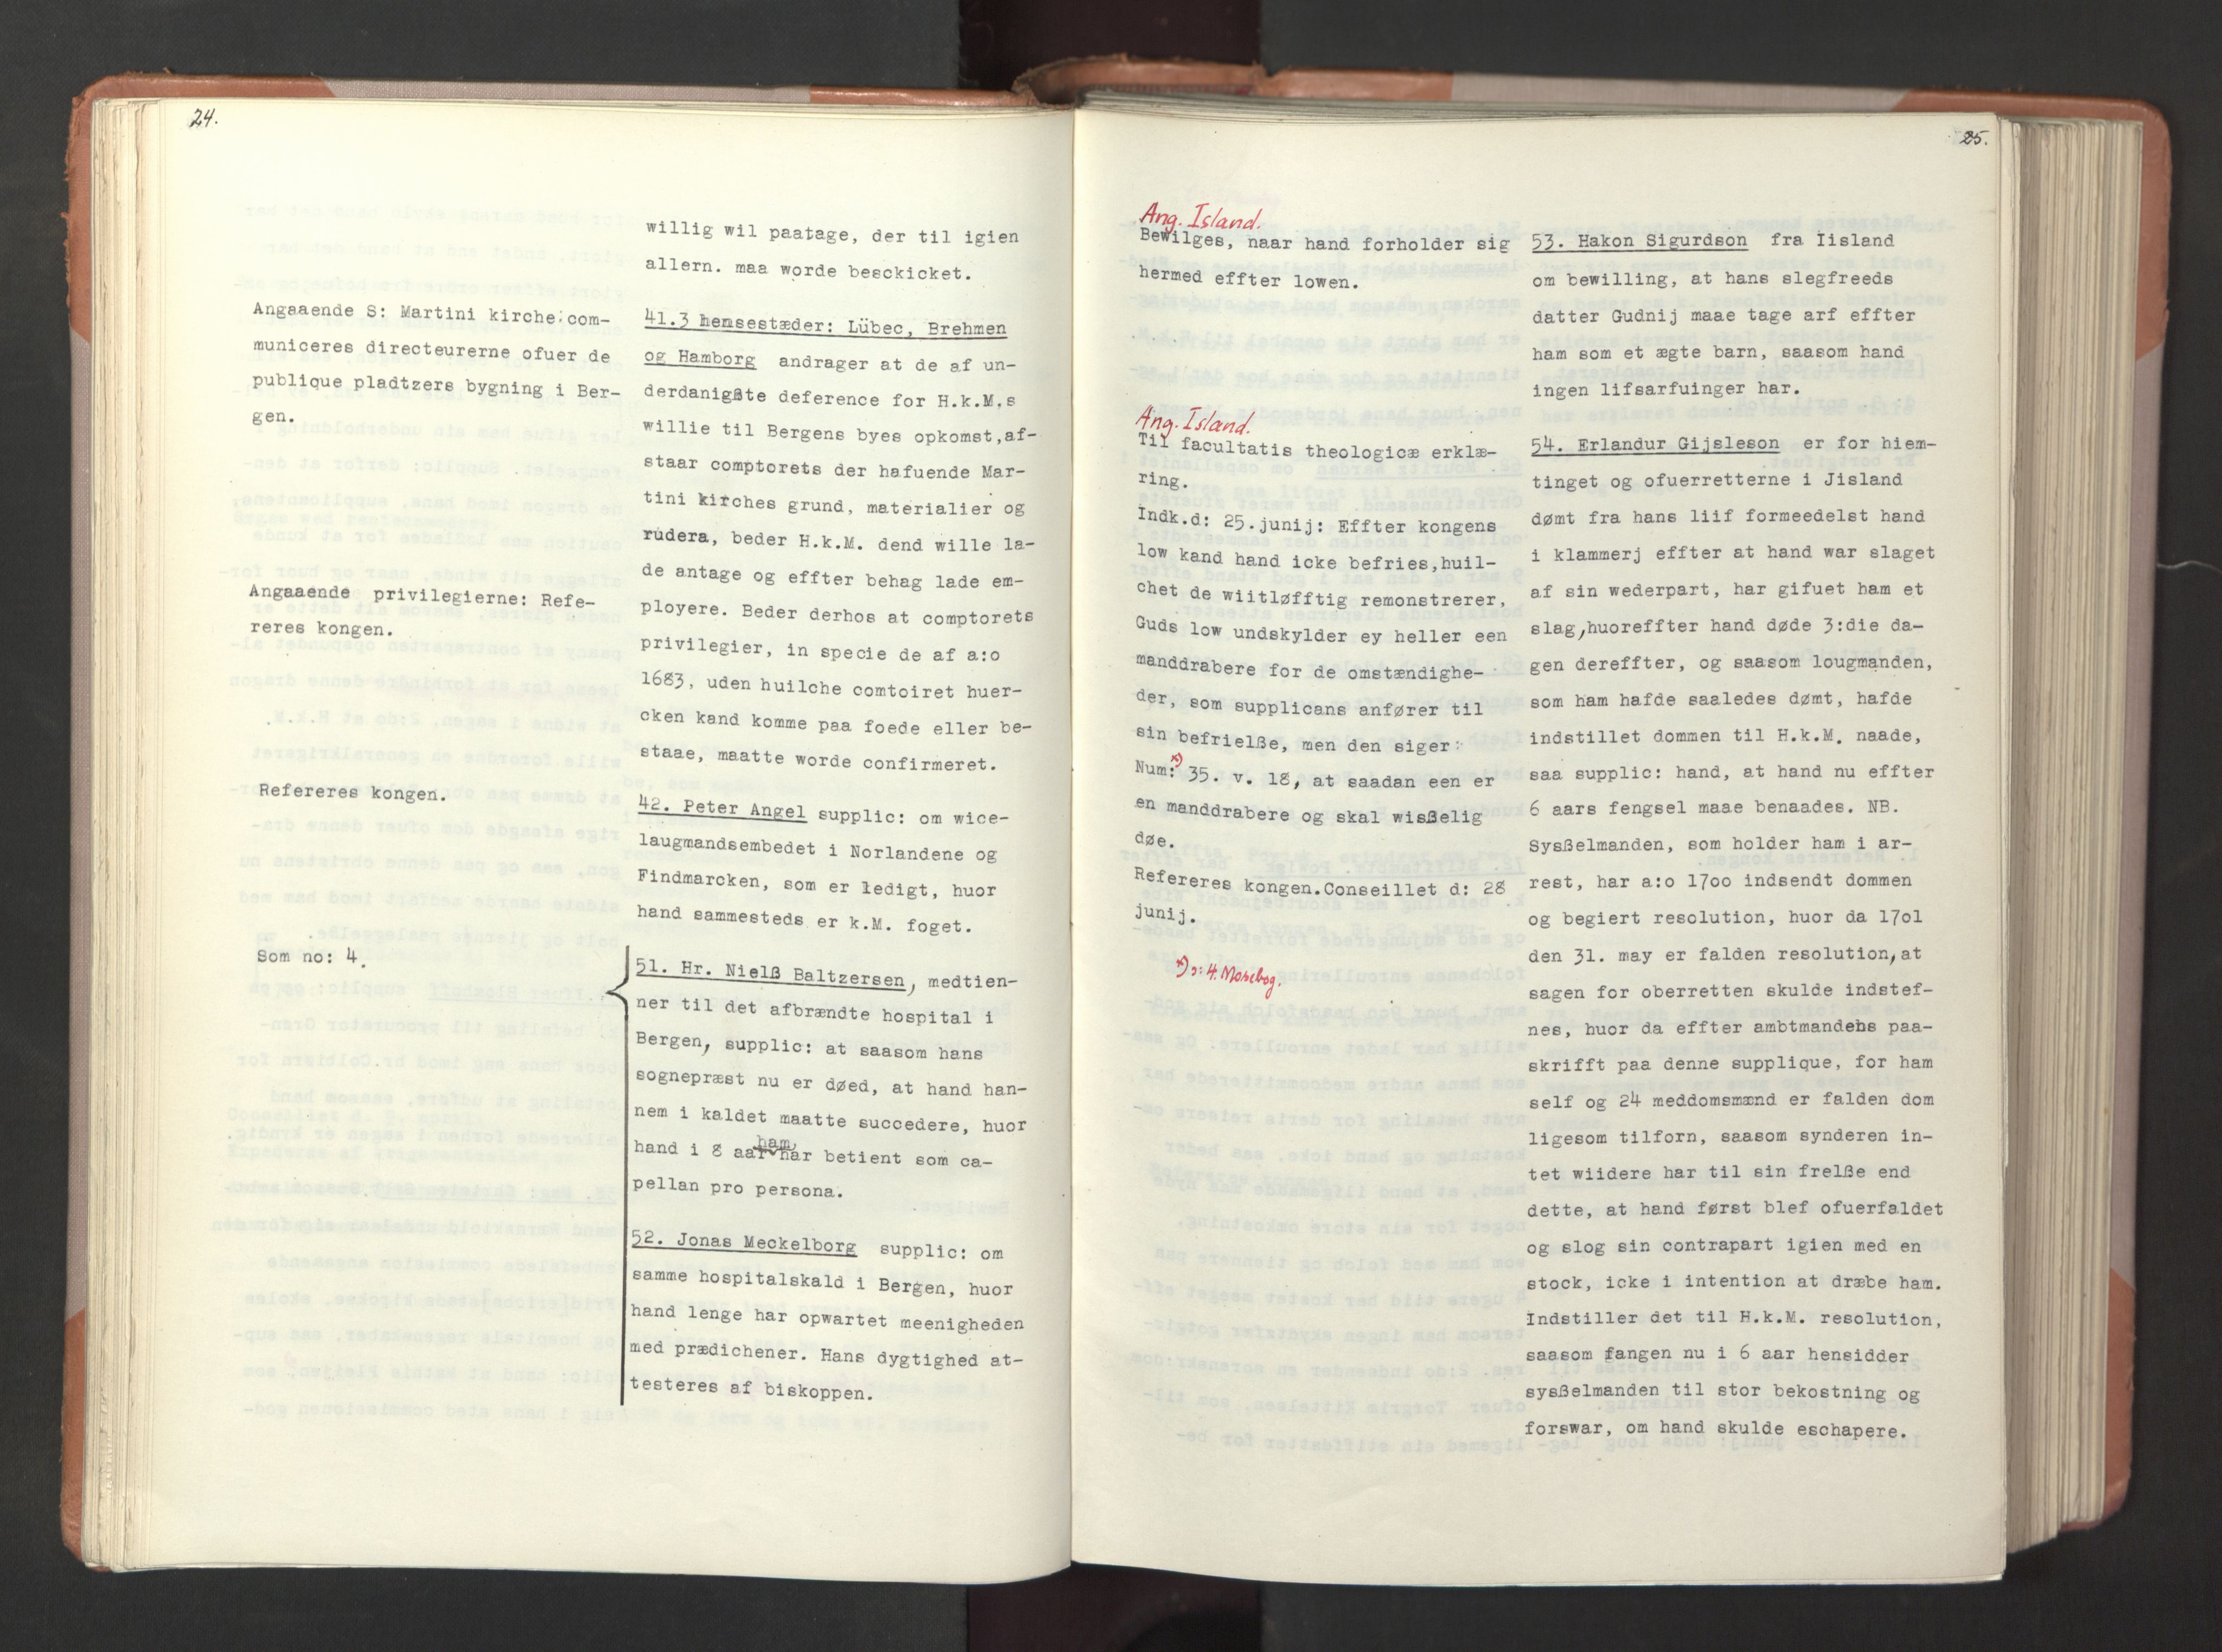 24.
willig wil paatage, der til igien
allern. maa worde besckicket.
Angaaende S: Martini kirche com-
municeres directeurerne ofuer de
publique pladtzers bygning i Ber-
gen.
41.3 hensestæder: Lübec, Brehmen
og Hamborg andrager at de af un-
derdanigßte deference for H.k.M.s
willie til Bergens byes opkomst,af-
staar comptorets der hafuende Mar-
tini kirches grund, materialier og
rudera, beder H.k.M. dend wille la-
de antage og effter behag lade em-
ployere. Beder derhos at comptorets
privilegier, in specie de af a:o
1683, uden huilche comtoiret huer-
cken kand komme paa foede eller be-
staae, maatte worde confirmeret.
Angaaende privilegierne: Refe-
reres kongen.
Refereres kongen.
42. Peter Angel supplic: om wice-
laugmandsembedet i Norlandene og
Findmarcken, som er ledigt, huor
hand sammesteds er k.M. foget.
Som no: 4.
51. Hr. Nielß Baltzersen, medtien-
ner til det afbrændte hospital i
Bergen, supplic: at saasom hans
sognepræst nu er døed, at hand han-
nem i kaldet maatte succedere, huor
ham
hand i 8 aar har betient som ca-
pellan pro persona.
52. Jonas Meckelborg supplic: om
samme hospitalskald i Bergen, huor
hand lenge har opwartet meenigheden
med prædichener. Hans dygtighed at-
testeres af biskoppen.
25.
Ang. Island.
Bewilges, naar hand forholder sig
hermed effter lowen.
53. Hakon Sigurdson fra Iisland
om bewilling, at hans slegfreeds
datter Gudnij maae tage arf effter
ham som et ægte barn, saasom hand
ingen lifsarfuinger har.
Ang. Island.
Til facultatis theologicæ erklæ-
ring.
Indk.d: 25.junij: Effter kongens
low kand hand icke befries,huil-
chet de wiitløfftig remonstrerer,
Guds low undskylder ey heller een
manddrabere for de omstændighe-
der, som supplicans anfører til
sin befrielße, men den siger:
Num:*) 35. v. 18, at saadan een er
en manddrabere og skal wisßelig
døe.
Refereres kongen.Conseillet d: 28
junij.
*) ɔ: 4. Mosebog.
54. Erlandur Gijsleson er for hiem-
tinget og ofuerretterne i Jisland
dømt fra hans liif formeedelst hand
i klammerj effter at hand war slaget
af sin wederpart, har gifuet ham et
slag,huoreffter hand døde 3:die da-
gen dereffter, og saasom lougmanden,
som ham hafde saaledes dømt, hafde
indstillet dommen til H.k.M. naade,
saa supplic: hand, at hand nu effter
6 aars fengsel maae benaades. NB.
Sysßelmanden, som holder ham i ar-
rest, har a:o 17oo indsendt dommen
og begiert resolution, huor da 17o1
den 31. may er falden resolution,at
sagen for oberretten skulde indstef-
nes, huor da effter ambtmandens paa-
skrifft paa denne supplique, for ham
self og 24 meddomsmænd er falden dom
ligesom tilforn, saasom synderen in-
tet wiidere har til sin frelße end
dette, at hand først blef ofuerfaldet
og slog sin contrapart igien med en
stock, icke i intention at dræbe ham.
Indstiller det til H.k.M. resolution,
saasom fangen nu i 6 aar hensidder
sysßelmanden til stor bekostning og
forswar, om hand skulde eschapere.